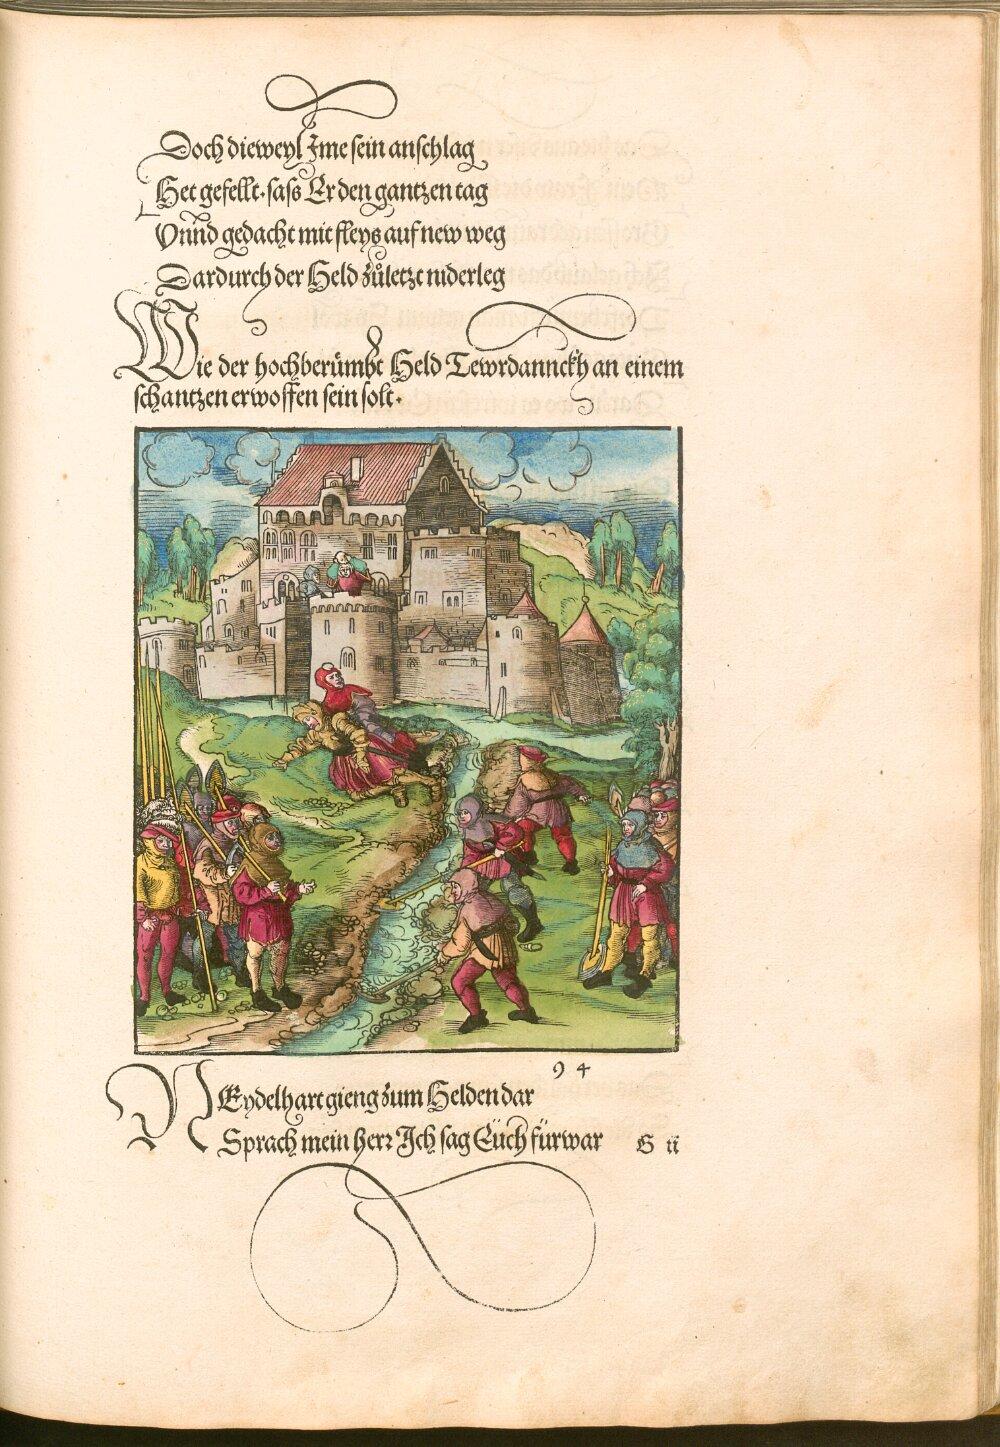 Doch dieweyl Ime sein anschlag
Het gefellt. sass Er den gantzen tag
Vnnd gedacht mit fleys auf new weg
Dardurch der Held zůletzt niderleg
Wie der hochberümbt Held Tewrdannckh an einem
schantzen erwoffen sein solt.
94
NEydelhart gieng zum Helden dar
Sprach mein herr Ich sag Euch fürwar
G ii